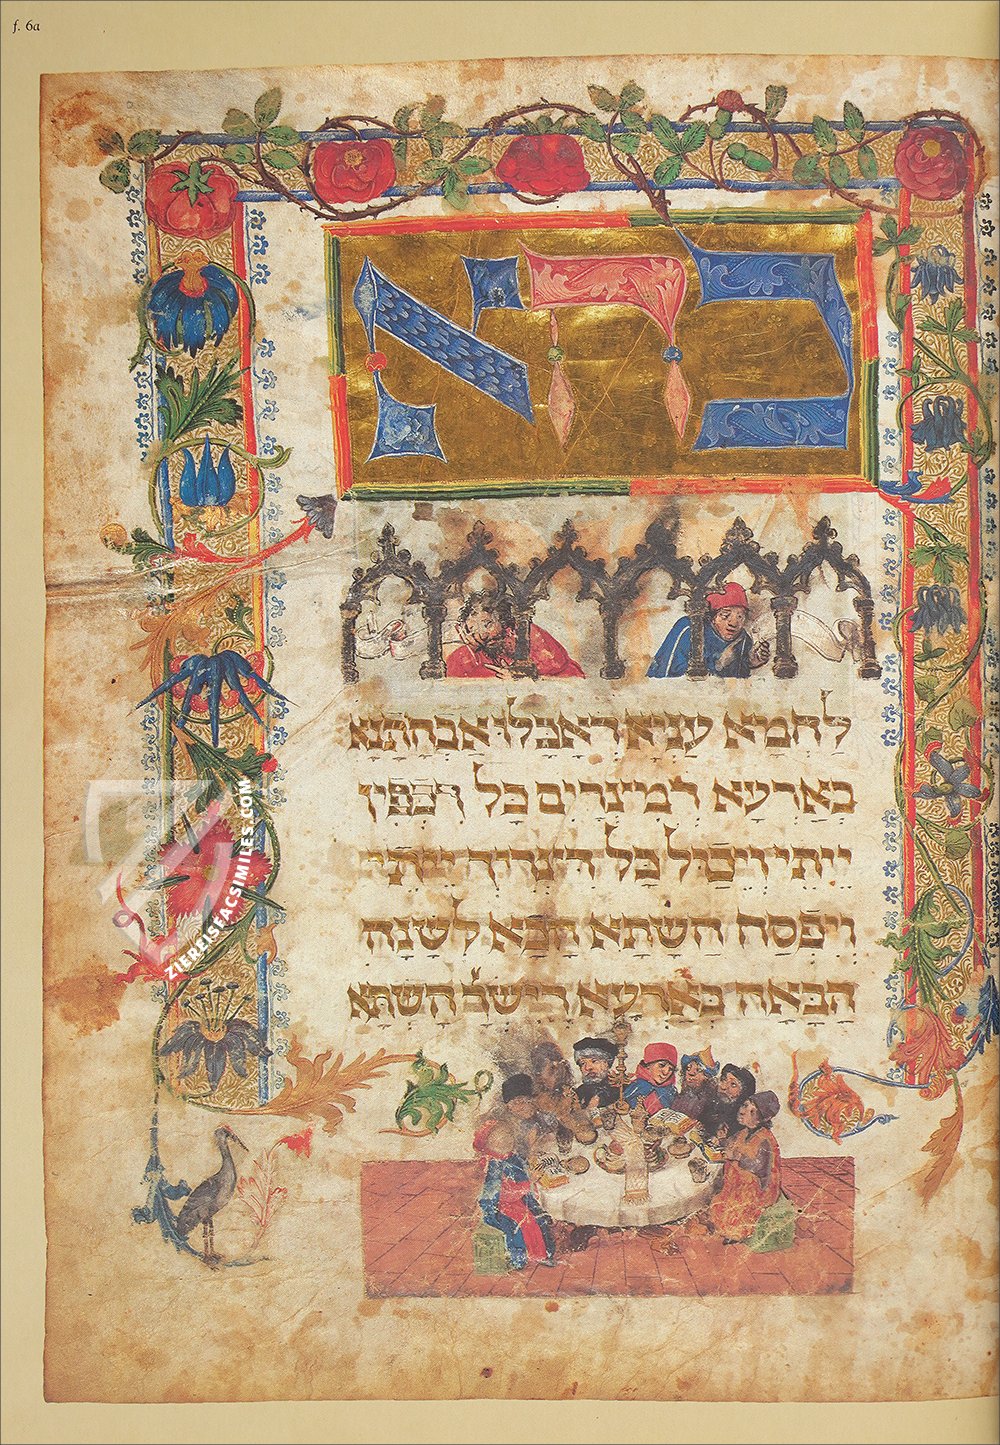 f. 6a
כהא
לחמא עניא דאכלו אבהתנא
בארעא דמצרים כל דכפין
ייתי ויכול כל דצריך ייתי
ויפסח השתא הכא לשנה
הבאה בארעא דישר׳ השתא
ZIEREISFACSIMILES.COM